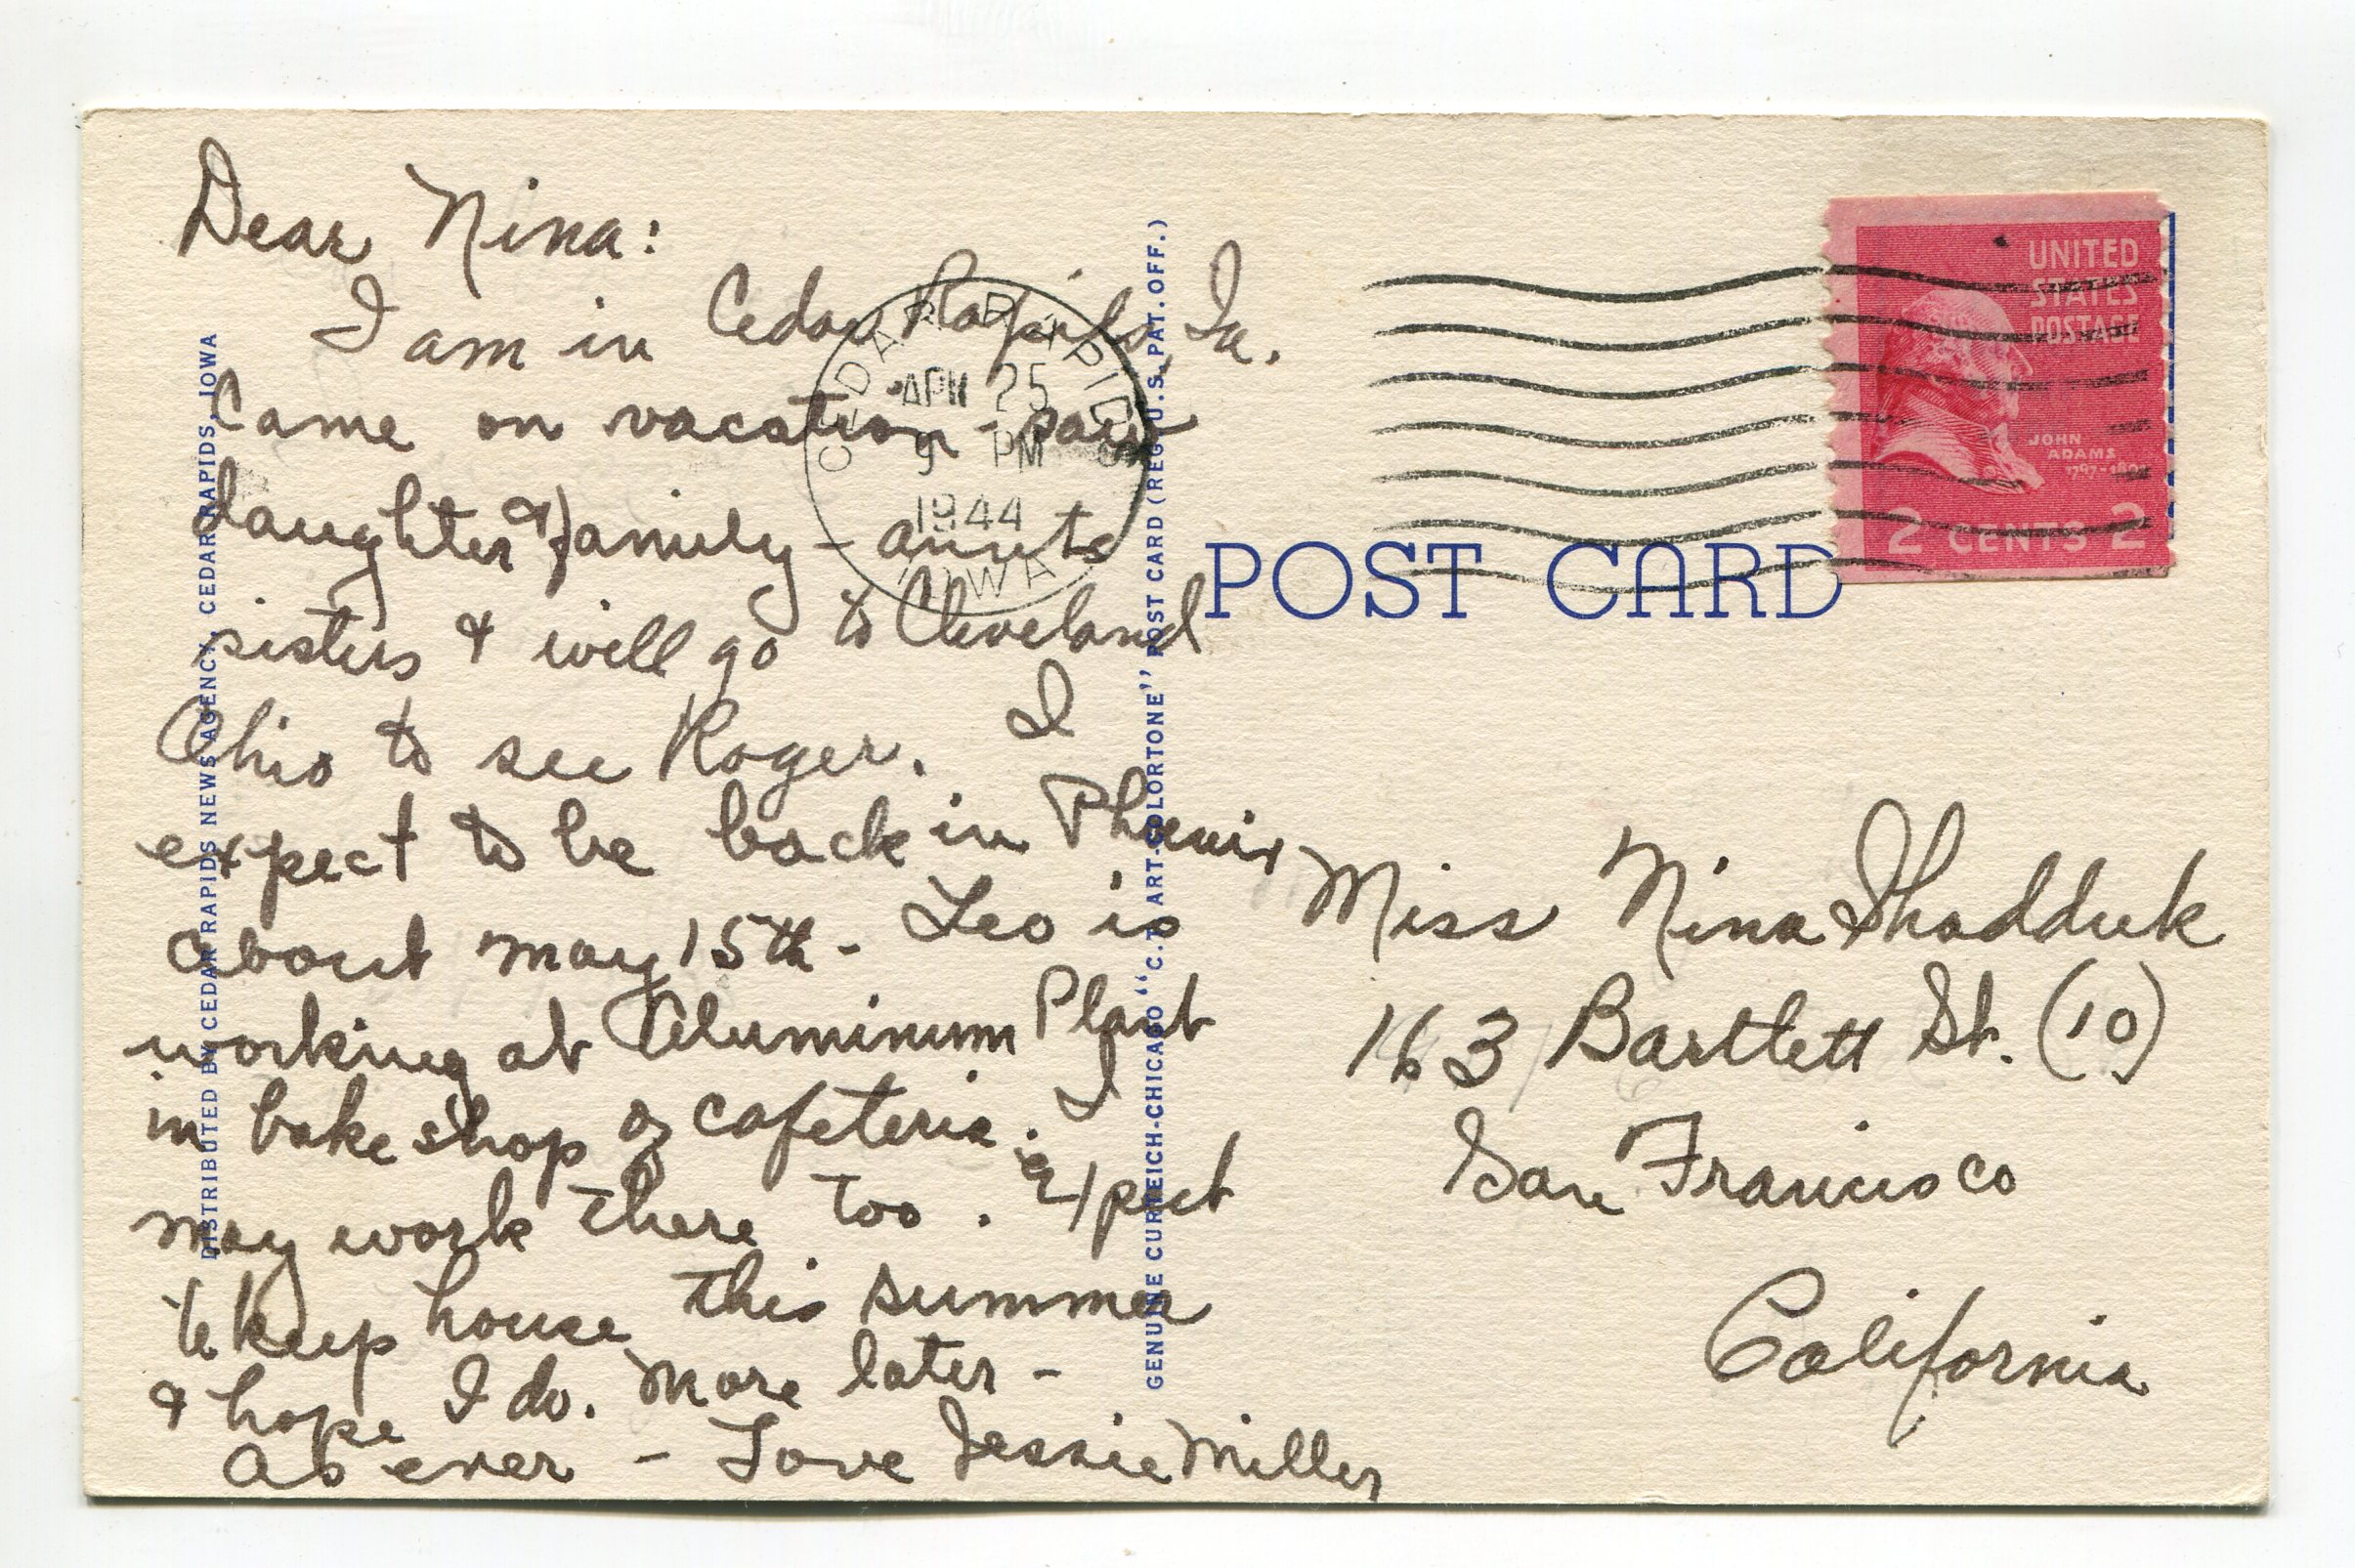 Dear Nina:
I am in Cedar Rapids, Ia.
Came on vacation - saw
daughter & family - aunts
sisters & will go to Cleveland
Ohio to see Roger. I
expect to be back in Phoenix
about may 15th - Leo is
working at Aluminum Plant
in bake shop of cafeteria. I
may work there too. expect
to keep house this summer
& hope I do. more later -
As ever - Love Jessie Miller
DISTRIBUTED BY CEDAR RAPIDS NEWS AGENCY, CEDAR RAPIDS, IOWA
CEDAR RAPIDS
APR 25
9 PM
1944
IOWA
GENUINE CURTEICH-CHICAGO "C.T. ART-COLORTONE" POST CARD (REG. U.S. PAT. OFF.)
POST CARD
UNITED
STATES
POSTAGE
JOHN
ADAMS
2 CENTS 2
Miss Nina Shadduk
163 Bartlett St. (10)
San Francisco
California